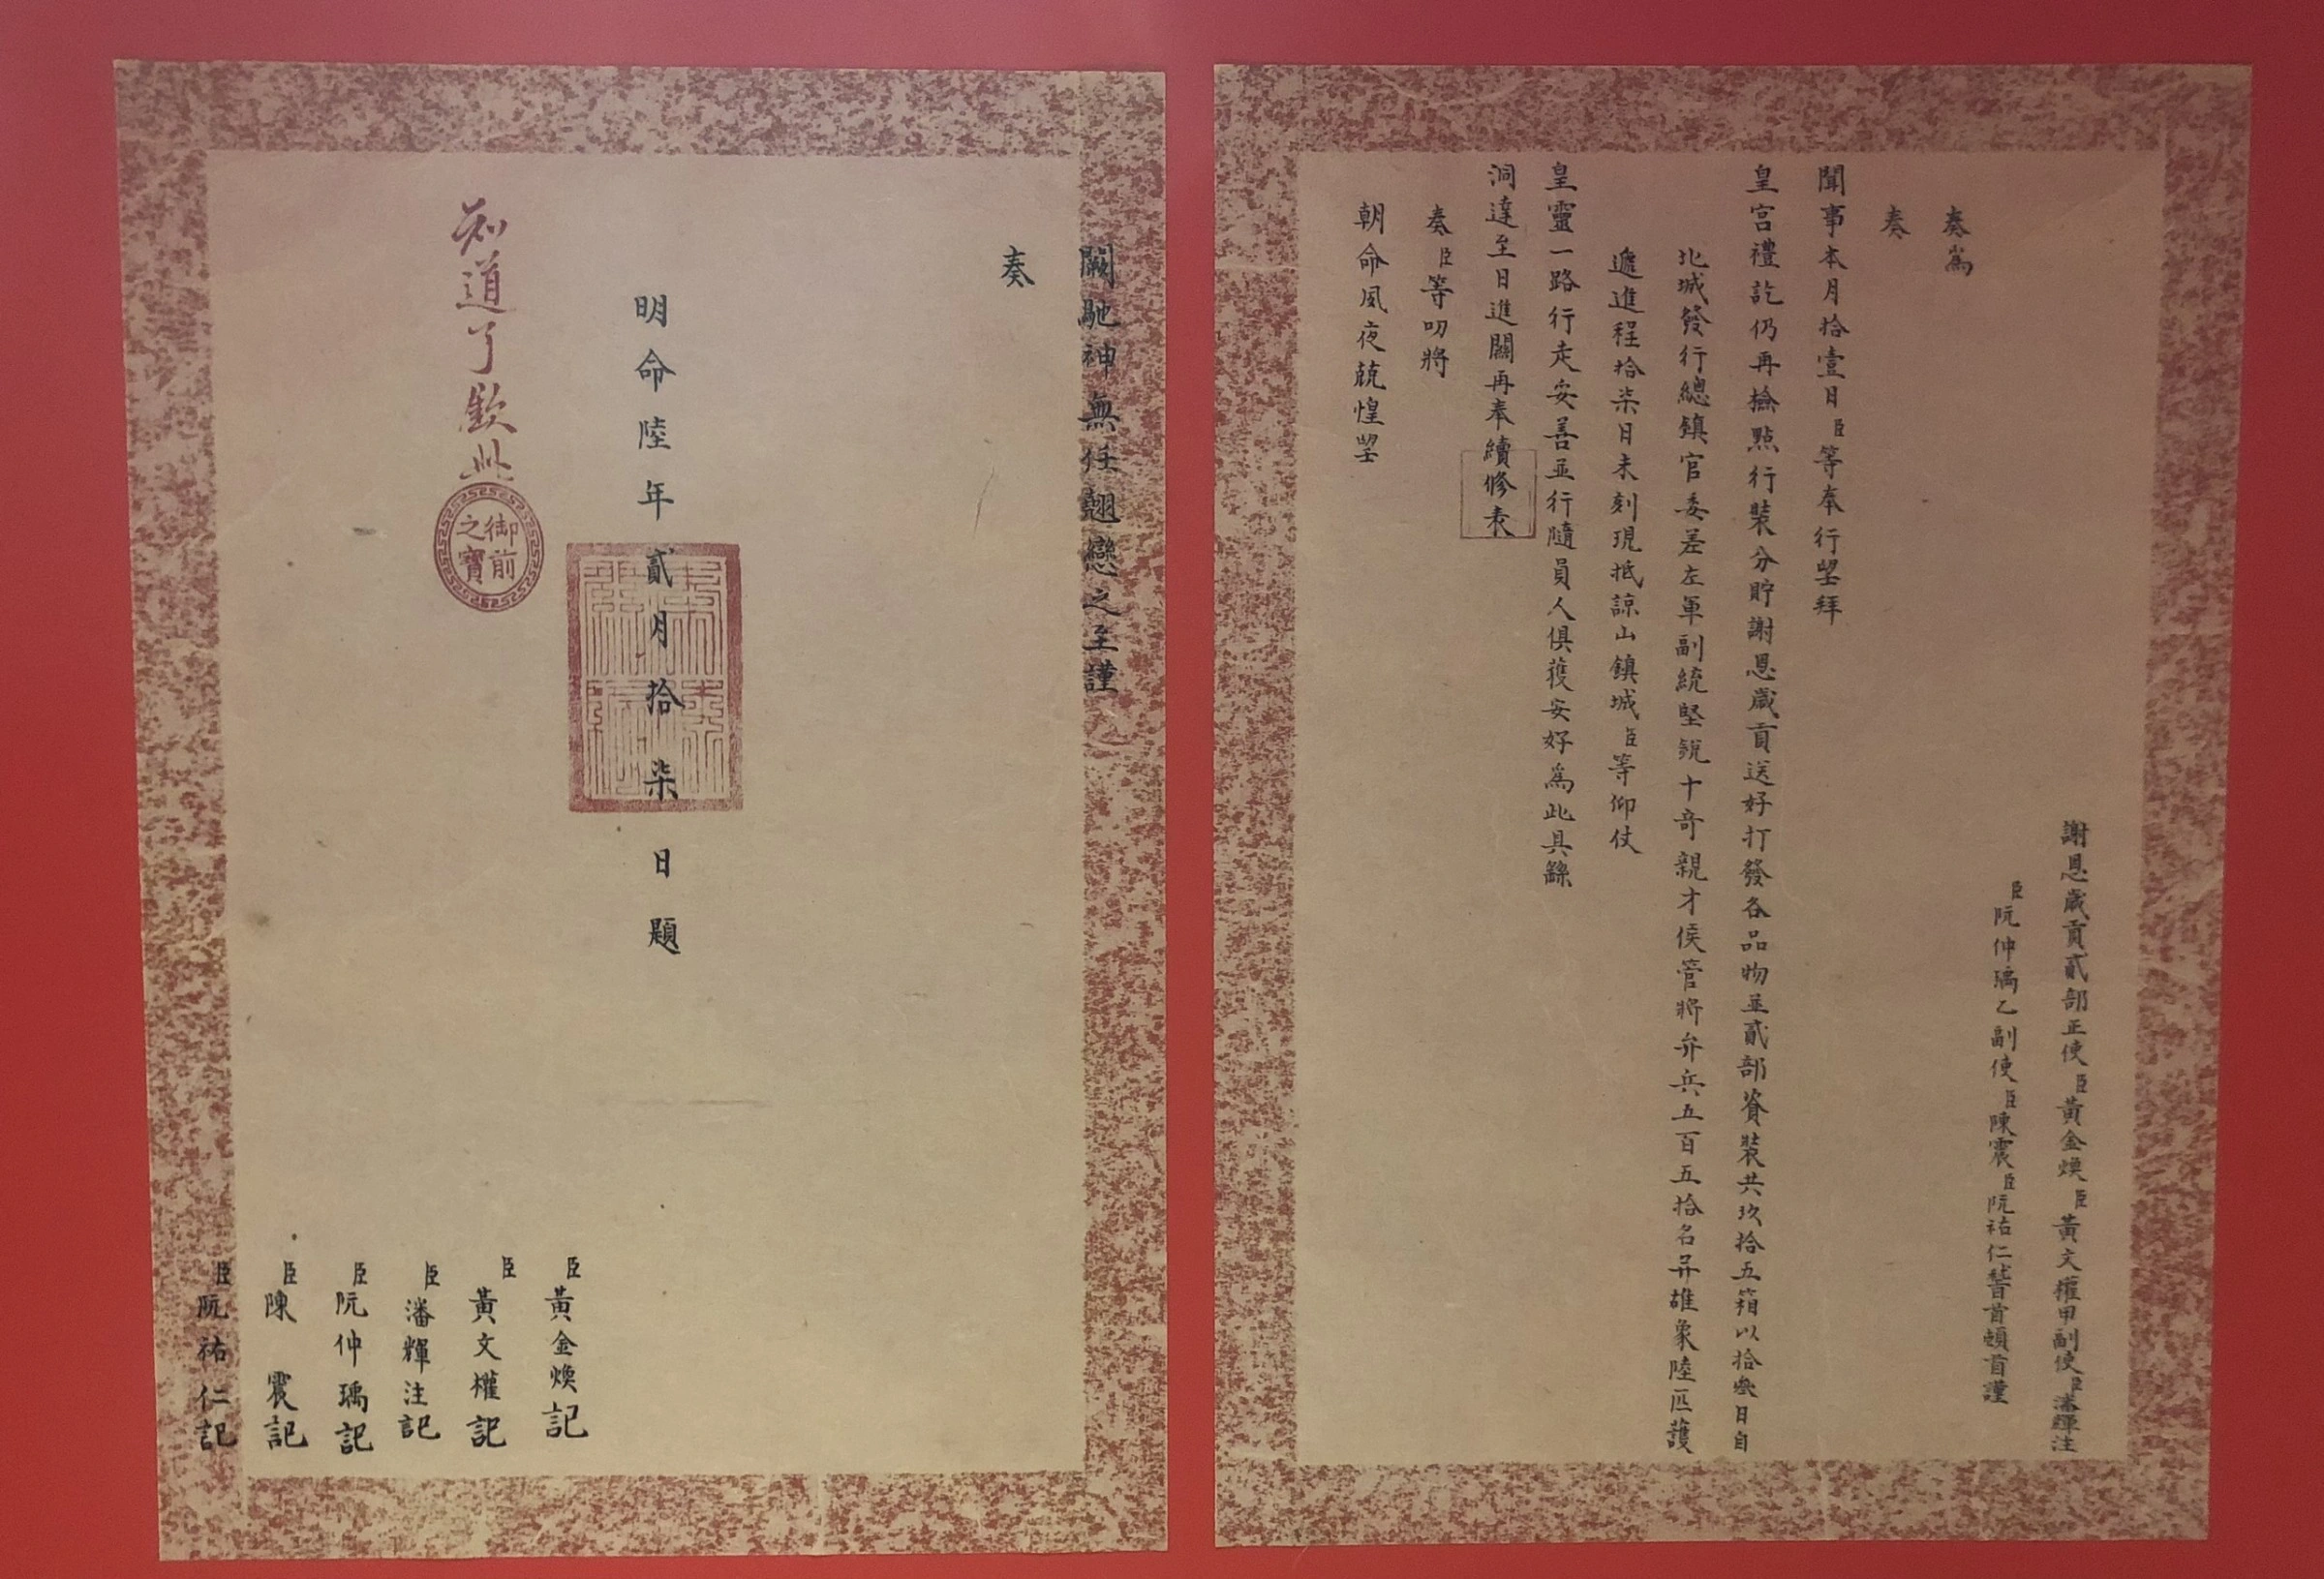 謝恩歲貢貳部正使臣黃金煥臣黃文權甲副使臣潘輝注
臣阮仲瑀乙副使臣陳震臣阮祐仁稽首頓首謹
奏爲
奏
聞事本月拾壹日臣等奉行望拜
皇宮禮訖仍再撿點行裝分貯謝恩歲貢送好打發各品物並貳部資裝共玖拾五箱以拾叁日自
北城發行總鎮官委差左軍副統堅銳十奇親才侯管將弁兵五百五拾名并雄象陸匹護
遞進程拾柒日未刻現抵諒山鎮城臣等仰仗
皇靈一路行走安善並行隨員人俱獲安好爲此具繇
洞達至日進關再奉續修表
奏臣等叨將
朝命夙夜兢惶望
闕馳神無任翹戀之至謹
奏
明命陸年貳月拾柒日題
知道了欽此
御前之寶
臣黃金煥記
臣黃文權記
臣潘輝注記
臣阮仲瑀記
臣陳震記
臣阮祐仁記